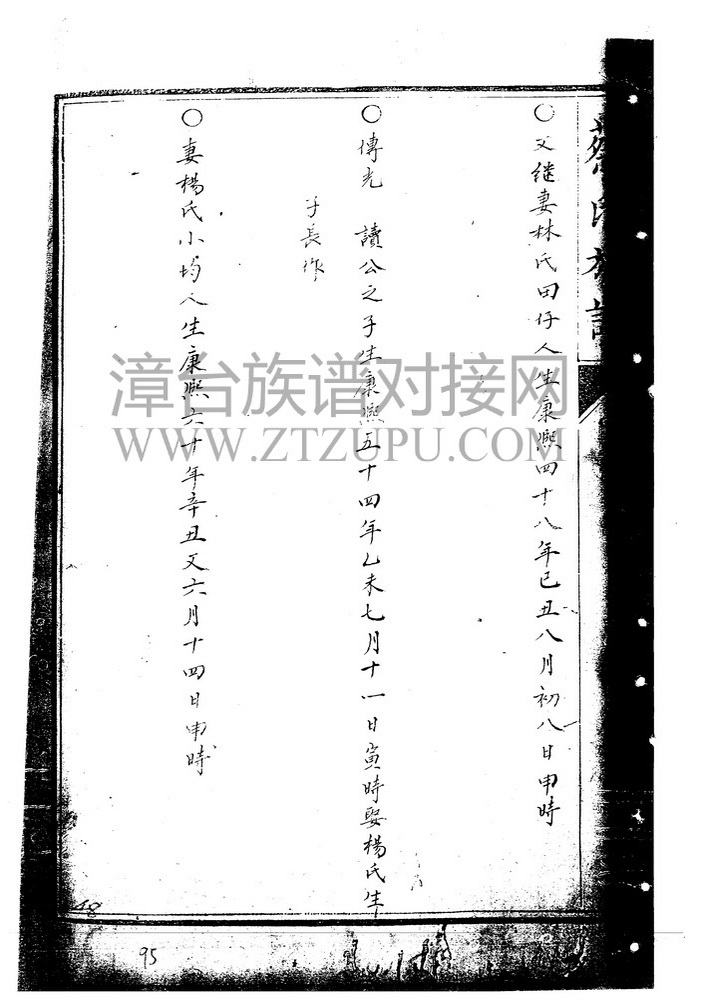 蔡氏族譜
○又继妻林氏田仔人生康熙四十八年己丑八月初八日申時
○傳光 讀公之子生康熙五十四年乙未七月十一日寅時娶楊氏生
子長作
○妻楊氏小均人生康熙六十年辛丑又六月十四日申時
漳台族谱对接网
WWW.ZTZUPU.COM
48
95